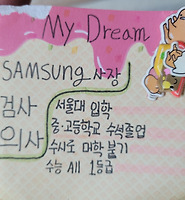 My Dream
SAMSUNG 사장
검사
의사
서울대 입학
중·고등학교 수석졸업
수시로 대학 붙기
수능 All 1등급